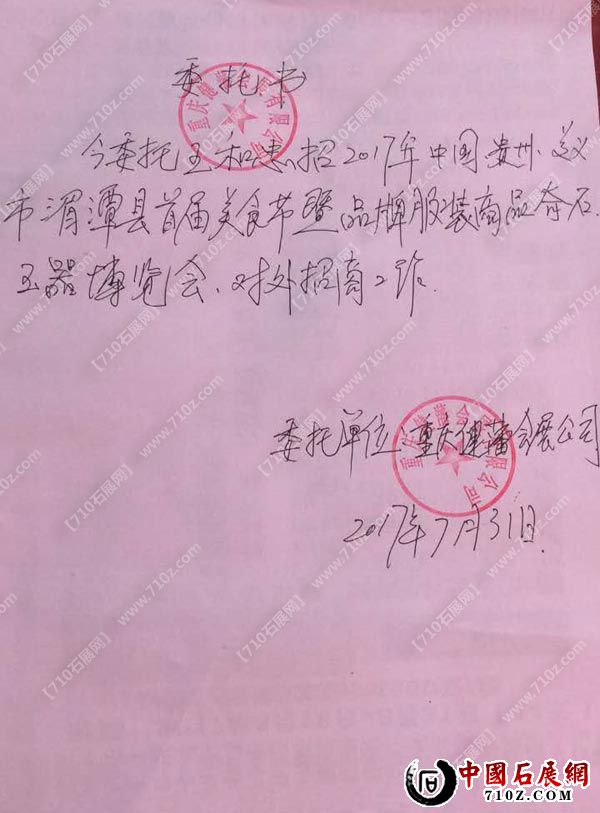 委托书
今委托王和忠招2017年中国贵州.遵义
市湄潭县首届美食节暨品牌服装商品奇石.
玉器博览会、对外招商工作.
委托单位:重庆健蕃会展公司
2017年7月31日.
【710石展网】www.710z.com
中國石展網
710Z.COM